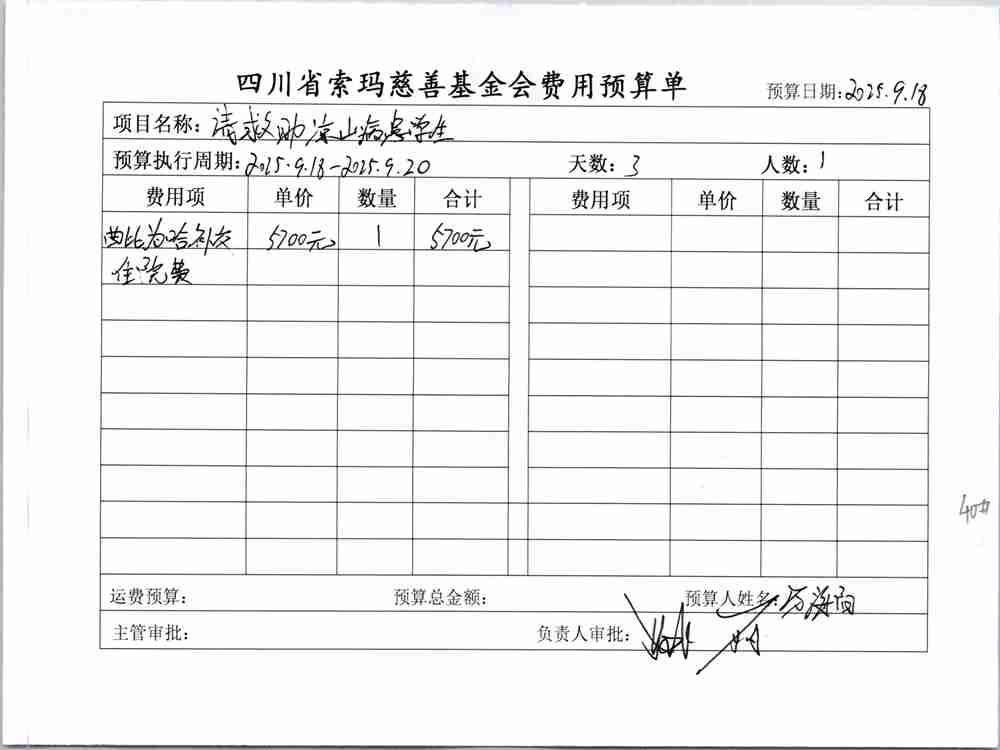 四川省索玛慈善基金会费用预算单
预算日期:2025.9.18
项目名称:请救助凉山病患学生
预算执行周期:2025.9.18-2025.9.20 天数:3 人数:1
费用项 单价 数量 合计 费用项 单价 数量 合计
曲比为哈补交 5700元 1 5700元
住院费
40#
运费预算: 预算总金额: 预算人姓名:
主管审批: 负责人审批: